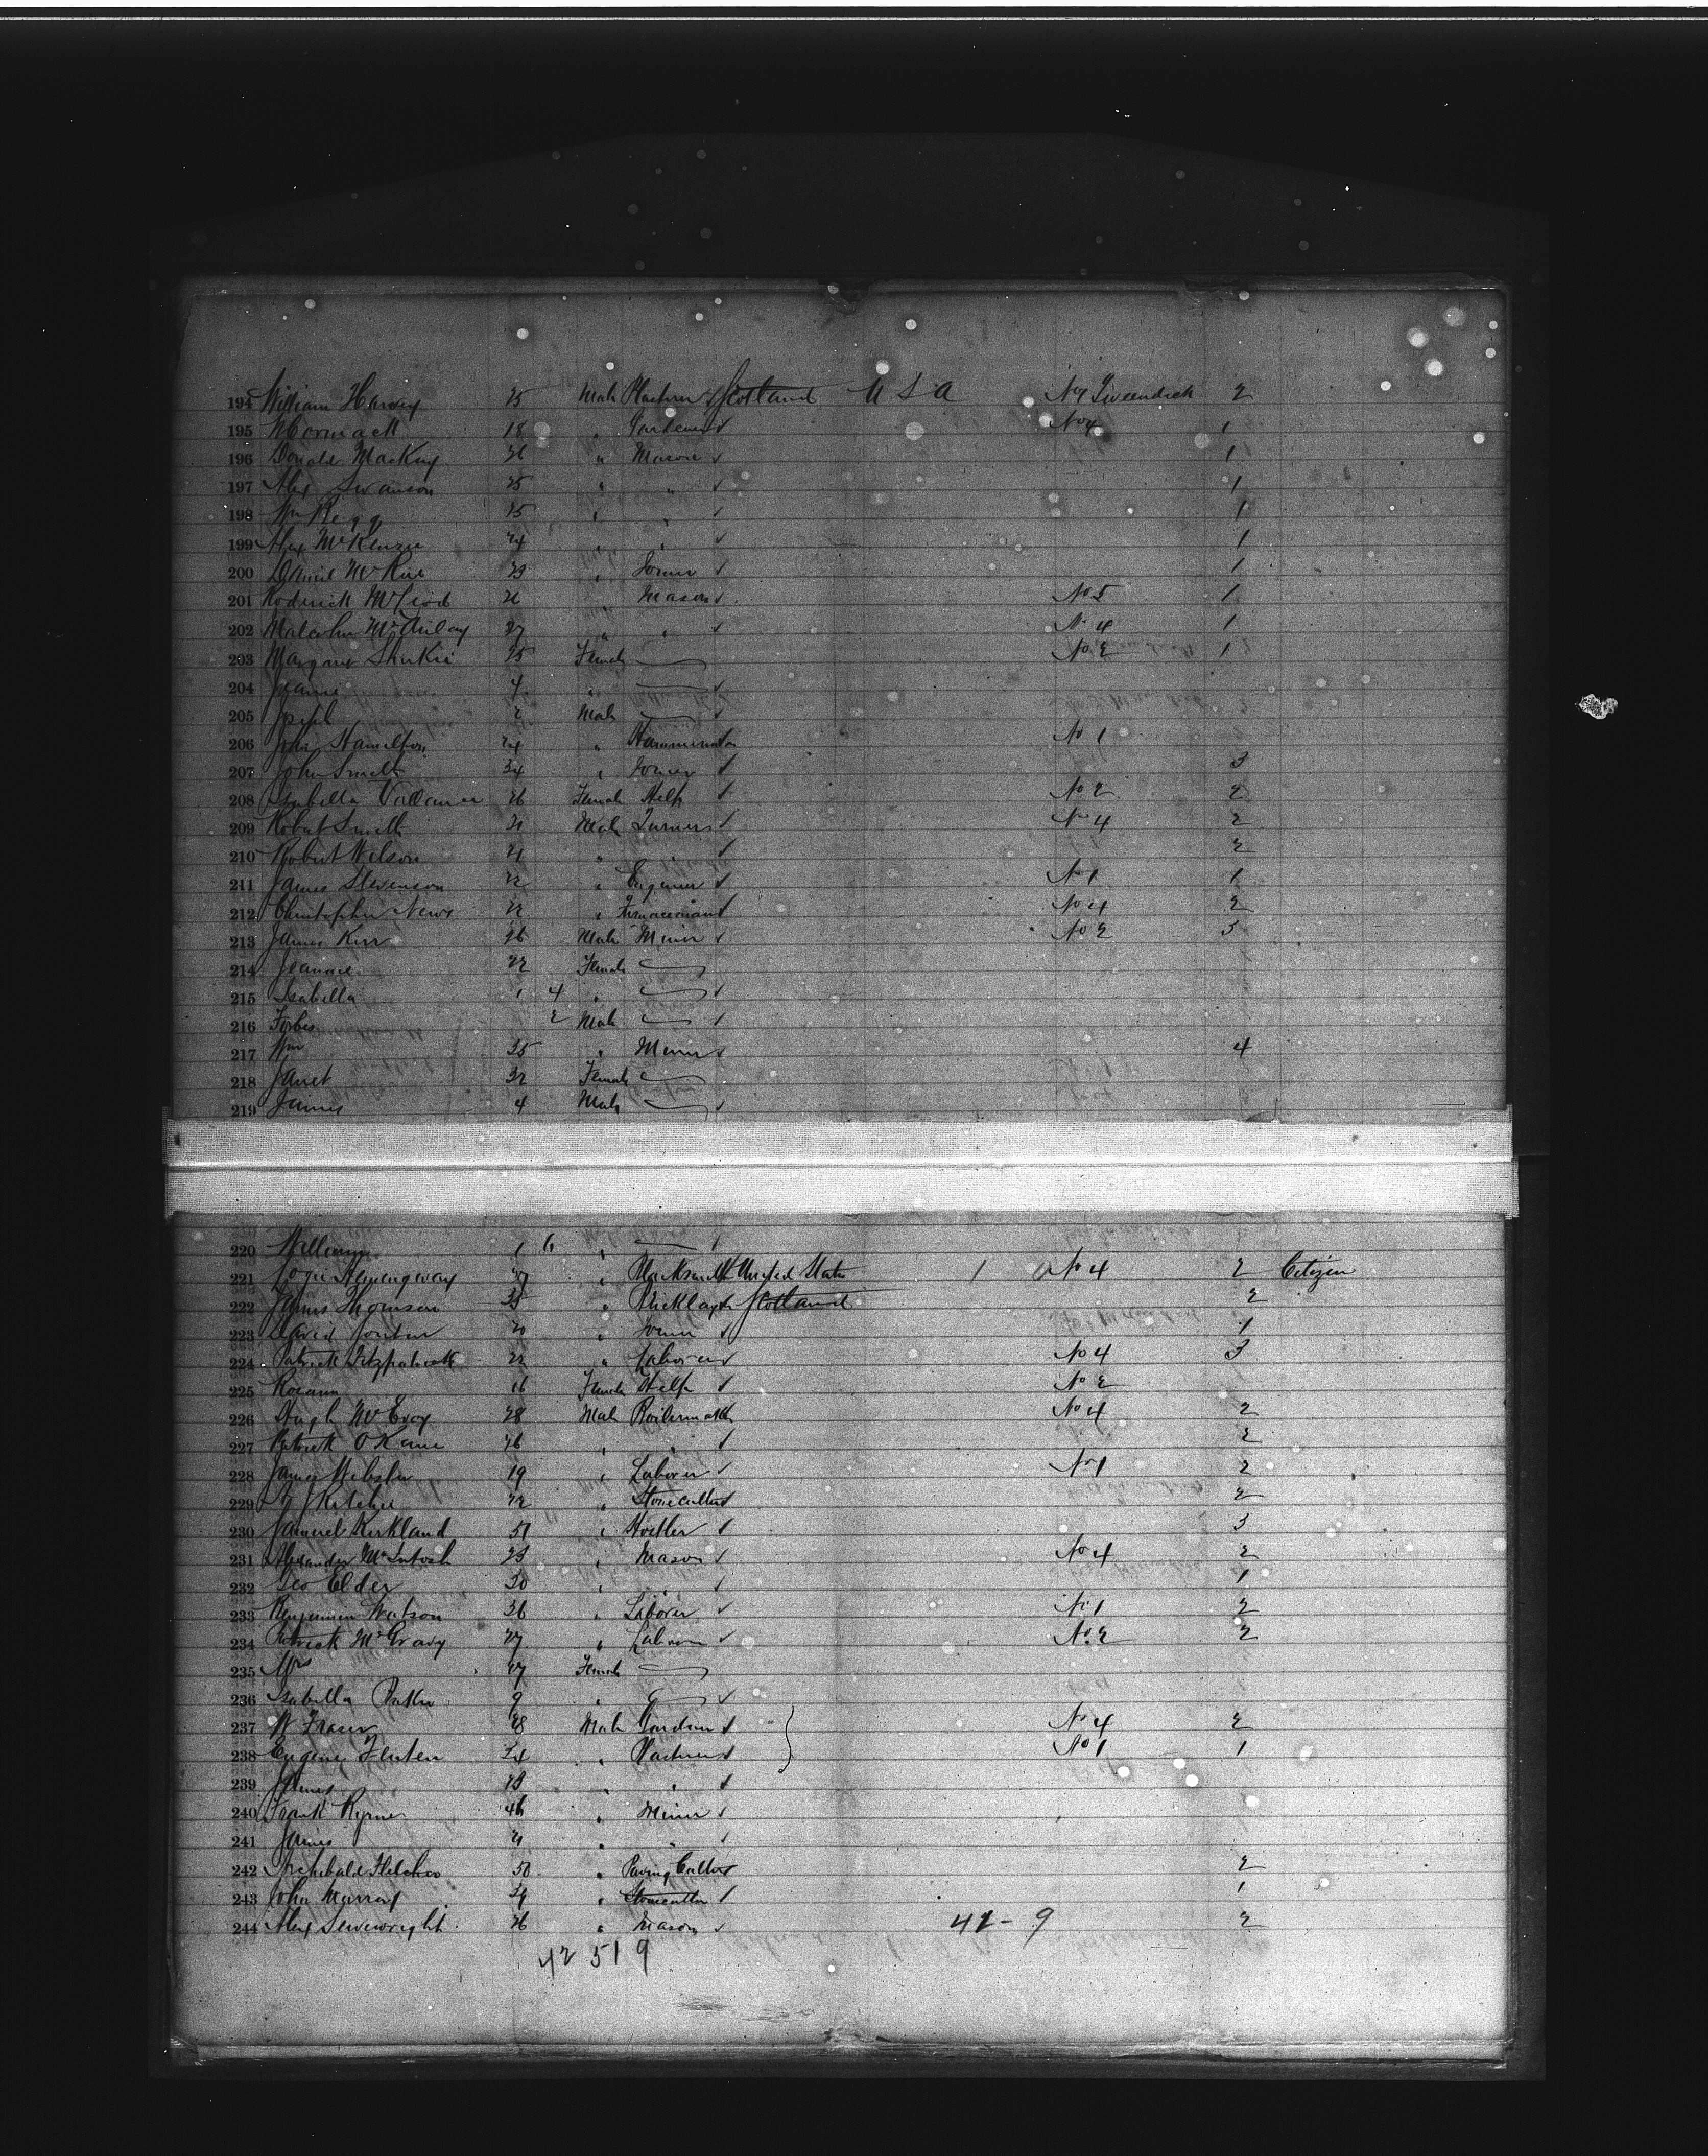 194 William Harvey 25 Male Plasterer Scotland U S A No 4 Tweendeck 2
195 W Cormack 18 " Gardener ✓ No 4 1
196 Donald MacKay 26 " Mason ✓ 1
197 Alex Swanson 25 " " ✓ 1
198 Wm Begg 25 " " ✓ 1
199 Alex McKenzie 24 " " ✓ 1
200 23 " Joiner ✓ 1
201 Roderick McLeod 26 Mason ✓ No 5 1
202 Malcolm McAulay 27 " " ✓ No 4 1
203 Margaret 25 Female No 2 1
204 Jeanie 4 " ✓
205 Joseph 2 Male ✓
206 John Hamilton 24 " No 1
207 John Smith 34 " Joiner ✓ 3
208 Isabella 26 Female Help ✓ No 2 2
209 Robert Smith 21 Male Turner ✓ No 4 2
210 Robert Wilson 21 " " ✓ 2
211 James Stevenson 22 " Engineer ✓ No 1 1
212 Christopher News 22 " Furnaceman ✓ No 4 2
213 James Kerr 26 Male Miner ✓ No 2 5
214 Jeannie 22 Female
215 Isabella 1 4 " ✓
216 Forbes 2 Male ✓
217 Wm 35 " Miner ✓ 4
218 Janet 32 Female
219 James 4 Male ✓
220 William 1 6 "
221 Hemingway " Blacksmith United States 1 No 4 2 Citizen
222 James Thomson 35 " Bricklayer Scotland 2
223 David 20 " Joiner ✓ 1
224 Patrick Fitzpatrick 22 " Laborer ✓ No 4 3
225 Roseann 16 Female Help ✓ No 2
226 Hugh McEvoy 28 Male Boilermaker No 4 2
227 Patrick O'Kane 26 " " ✓ 2
228 James Webster 19 " Laborer ✓ No 1 2
229 Ritchie 22 " Stonecutter ✓ 2
230 Samuel Kirkland 51 " Hostler ✓ 3
231 Alexander McIntosh 23 " Mason ✓ No 4 2
232 Geo Elder 30 " " ✓ 1
233 Benjamin Watson 36 " Laborer ✓ No 1 2
234 Patrick McGrady 27 " Laborer ✓ No 2 2
235 Mrs 27 Female
236 Isabella 9 " ✓
237 W Fraser 28 Male Gardener ✓ No 4 2
238 Eugene 54 " Plasterer ✓ No 1 1
239 James 23 " " ✓
240 Frank Byrne 46 " Miner ✓
241 James 21 " " ✓
242 Archibald Fletcher 50 " Paving Cutter ✓ 2
243 John Murray 24 " Stonecutter ✓ 1
244 Alex Sievewright 26 " Mason ✓ 41 - 9 2
42 51 9